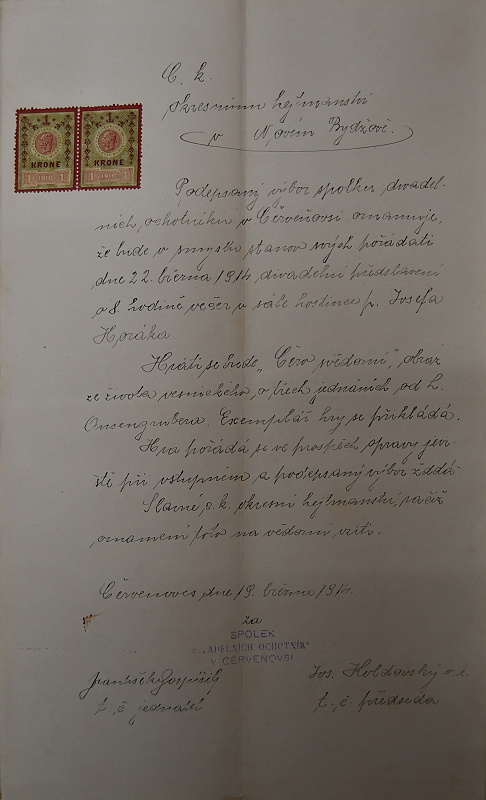 C. k.
okresnímu hejtmanství
v Novém Bydžově.
1
KRONE
1 1910 1
1
KRONE
1 1910 1
Podepsaný výbor spolku divadel-
ních ochotníků v Červenovsi oznamuje,
že bude v smyslu stanov svých pořádati
dne 22. března 1914 divadelní představení
o 8. hodině večer v sále hostince p. Josefa
Horáka
Hráti se bude „Červ svědomí", obraz
ze života vesnického, o třech jednáních od L.
Onzengrubera. Exemplář hry se přikládá.
Hra pořádá se ve prospěch spravy jevi-
ště při vstupném a podepsaný výbor žádá
Slavné c. k. okresní hejtmanství, račiž
oznamení toto na vědomí vzíti.
Červenoves, dne 19. března 1914.
za
SPOLEK
DIVADELNÍCH OCHOTNÍKŮ
V ČERVENOVSI
František Pospíšil
t. č. jednatel
Jos. Holdovský
t. č. předseda